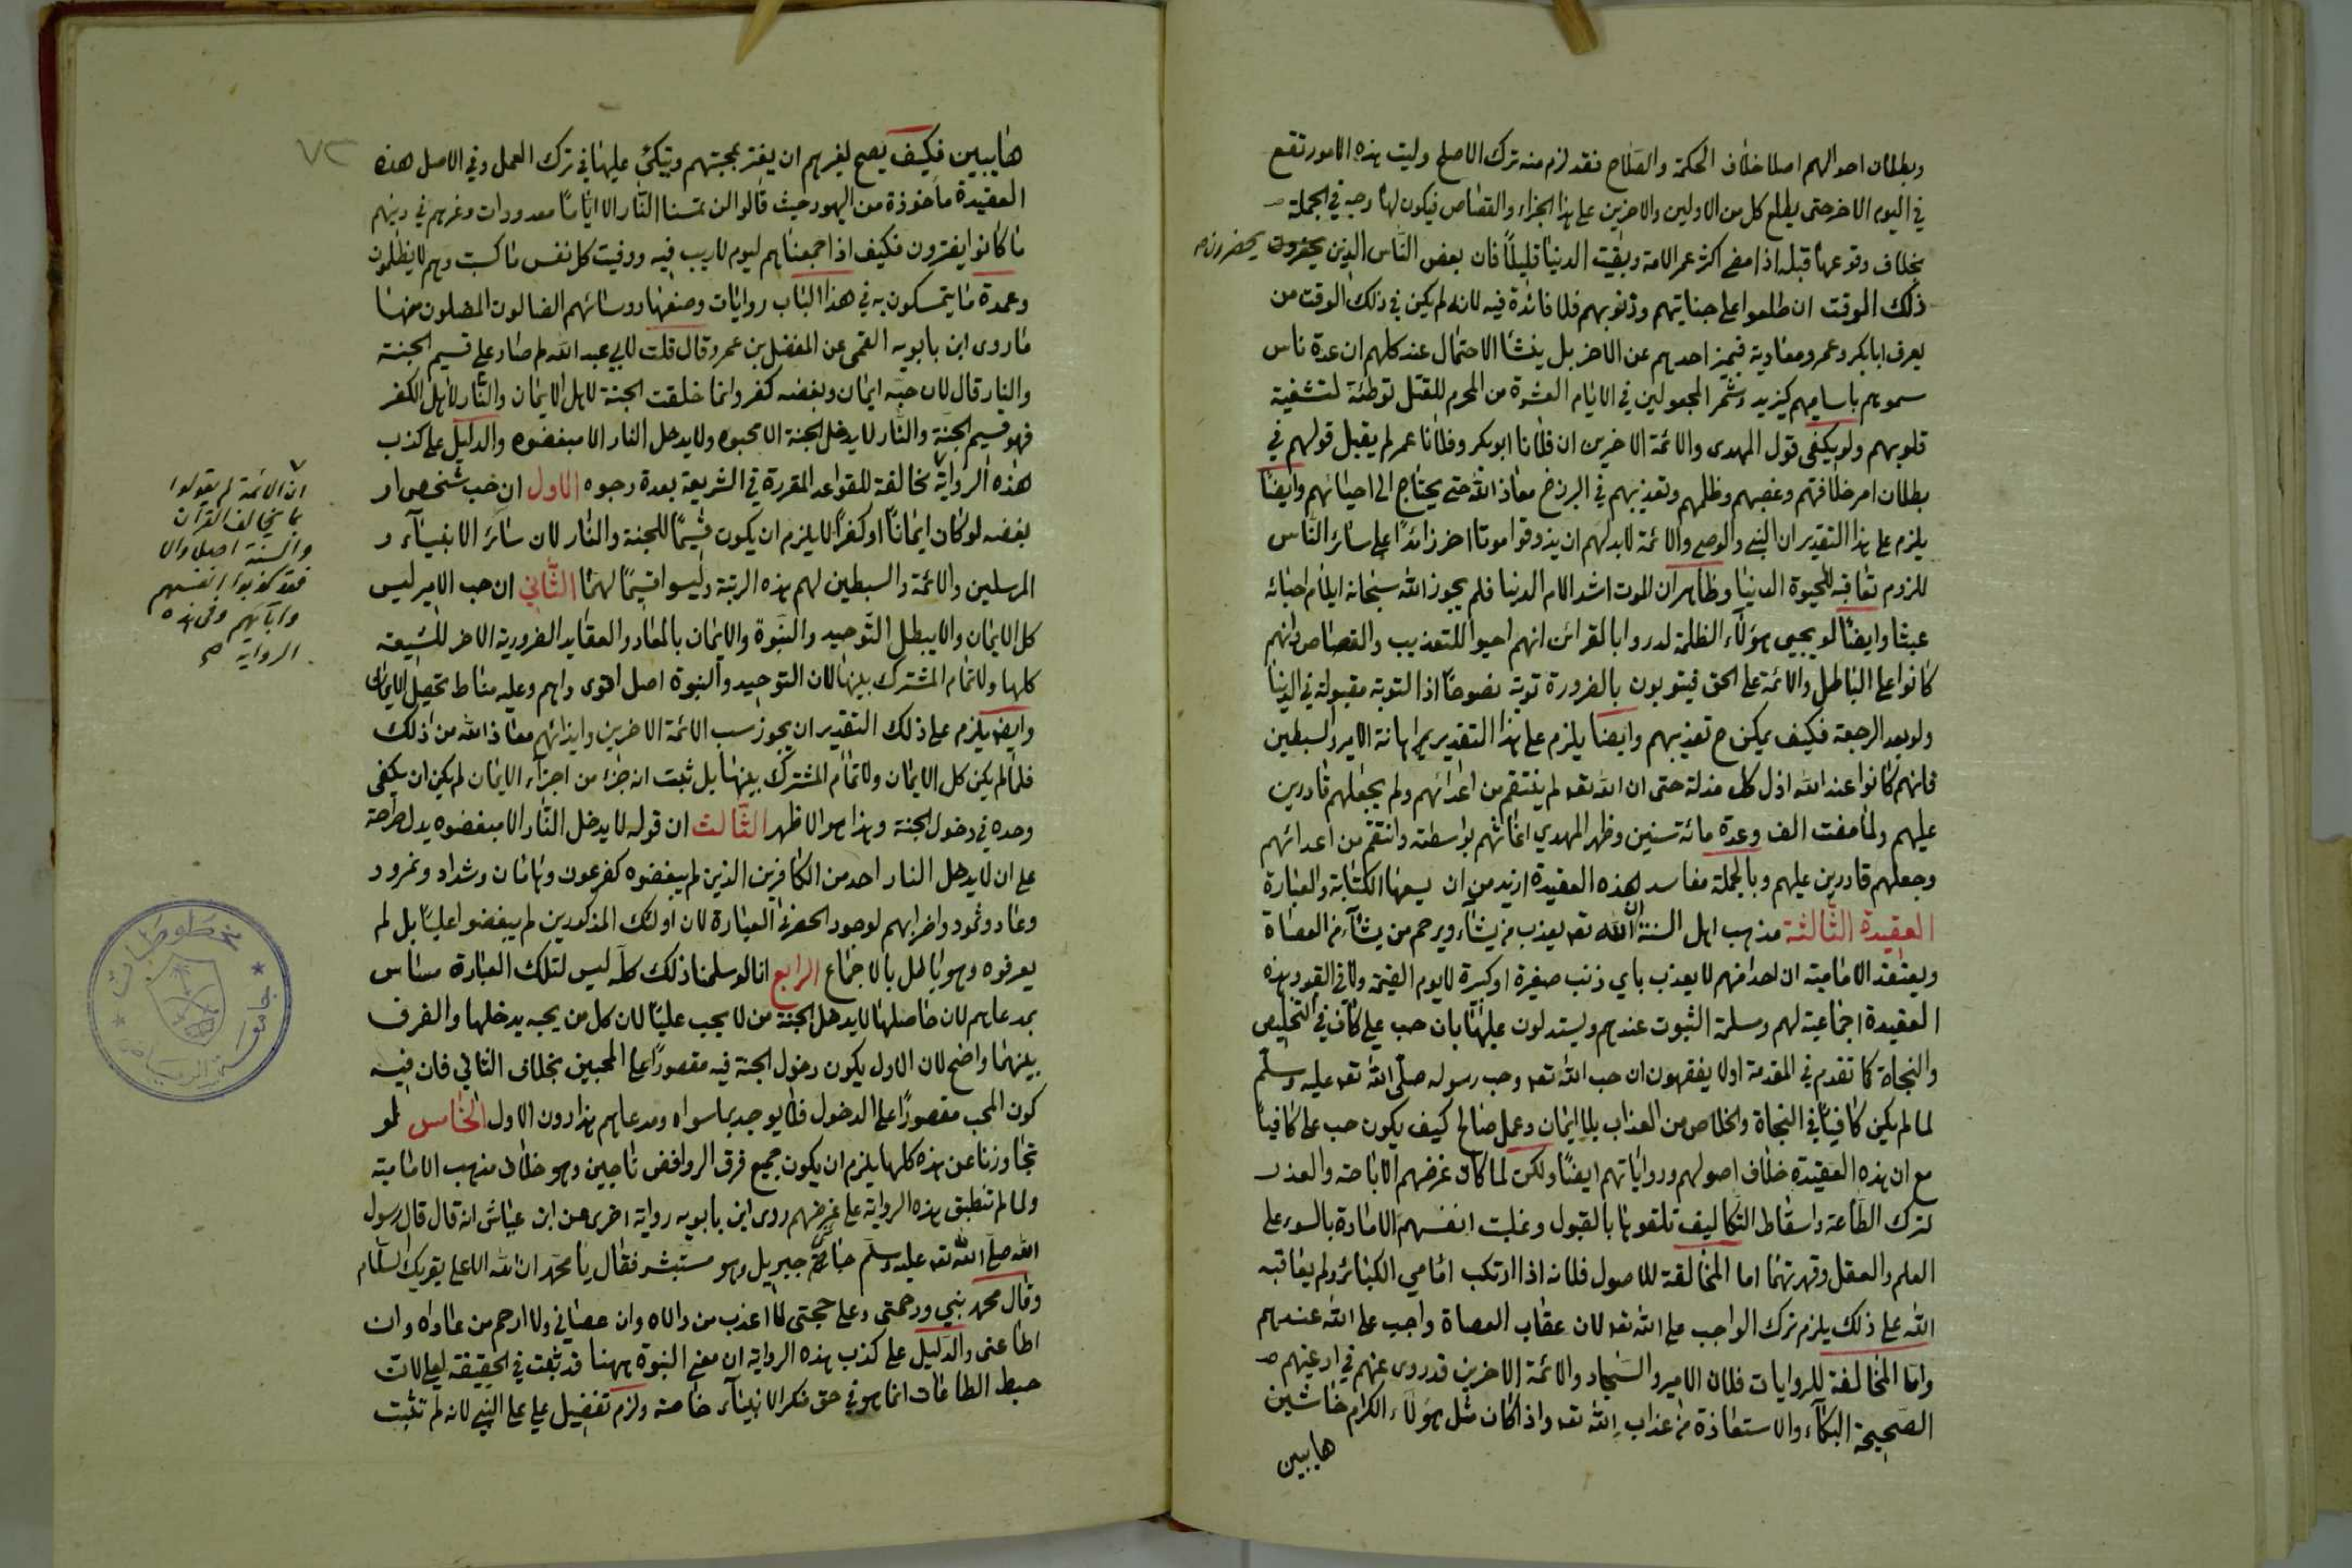 وبطلان احوالهم اصلا خلاف الحكمة والصلاح فقد لزم منه ترك الاصلح وليت هذه الامور تقع
في اليوم الاخر حتى يطلع كل من الاولين والاخرين على هذا الجزاء والقصاص فيكون لها وجه في الجملة
بخلاف وقوعها قبله اذا مضى اكثر عمر الامة وبقيت الدنيا قليلاً فان بعض الناس الذين يحضرون
يحضرون صح
ذلك الوقت ان طلعوا على جنايتهم وذنوبهم فلا فائدة فيه لانه لم يكن في ذلك الوقت من
يعرف ابا بكر وعمر ومعاوية فيميز احدهم عن الاخر بل ينشا الاحتمال عند كلهم ان عدة ناس
سموهم باساميهم كيزيد وشمر المجعولين في الايام العشرة من المحرم للقتل توطئة لتشفية
قلوبهم ولو يكفى قول المهدى والائمة الاخرين ان فلانا ابو بكر وفلانا عمر لم يقبل قولهم في
بطلان امر خلافتهم وغصبهم وظلمهم وتعذيبهم في البرزخ معاذ الله حتى يحتاج الى احيائهم وايضاً
يلزم على هذا التقدير ان النبي والوصي والائمة لابد لهم ان يذوقوا موتا اخر زائداً على سائر الناس
للزوم تعاقبه للحيوة الدنيا وظاهر ان الموت اشد الام الدنيا فلم يجوز الله سبحانه ايلام احبائه
عبثا وايضاً لو يحيى هؤلاء الظلمة لدروا بالقرائن انهم احيوا للتعذيب والقصاص وانهم
كانوا على الباطل والائمة على الحق فيتوبون بالضرورة توبة نصوحاً اذ التوبة مقبولة في الدنيا
ولو بعد الرجعة فكيف يمكن ح تعذيبهم وايضا يلزم على هذا التقدير اهانة الامير والسبطين
فانهم كانوا عند الله اذل كل مذلة حتى ان الله تعه لم ينتقم من اعدائهم ولم يجعلهم قادرين
عليهم ولما مضت الف وعدة مائة سنين وظهر المهدي اغاثهم بواسطته وانتقم من اعدائهم
وجعلهم قادرين عليهم وبالجملة مفاسد هذه العقيدة ازيد من ان يسعها الكتابة والعبارة
العقيدة الثالثة مذهب اهل السنة ان الله تعه يعذب من يشاء ويرحم من يشاء من العصاة
ويعتقد الامامية ان احدا منهم لا يعذب باي ذنب صغيرة او كبيرة لا يوم القيمة ولا في القبر وهذه
العقيدة اجماعية لهم ومسلمة الثبوت عندهم ويستدلون عليها بان حب علي كاف في التخليص
والنجاة كما تقدم في المقدمة اولا يفقهون ان حب الله تعه وحب رسوله صلى الله تعه عليه وسلم
لما لم يكن كافياً في النجاة والخلاص من العذاب بلا ايمان وعمل صالح كيف يكون حب على كافياً
مع ان هذه العقيدة خلاف اصولهم ورواياتهم ايضاً ولكن لما كان غرضهم الاباحة والعذر
لترك الطاعة واسقاط التكاليف تلقوها بالقبول وغلبت انفسهم الامارة بالسوء على
العلم والعقل وقهرتهما اما المخالفة للاصول فلانه اذا ارتكب امامي الكبائر ولم يعاقبه
الله على ذلك يلزم ترك الواجب على الله تعه لان عقاب العصاة واجب على الله عندهم
واما المخالفة للروايات فلان الامير والسجاد والائمة الاخرين قد روى عنهم في ادعيتهم
الصحيحة البكاء والاستعاذة من عذاب الله تعه واذا كان مثل هؤلاء الكرام خاشين
هايبين
٧٣
هايبين فكيف يصح لغيرهم ان يغتر بمحبتهم ويتكئ عليها في ترك العمل وفي الاصل هذه
العقيدة ماخوذة من اليهود حيث قالوا لن تمسنا النار الا اياماً معدودات وغرهم في دينهم
ما كانوا يفترون فكيف اذا جمعناهم ليوم لا ريب فيه ووفيت كل نفس ما كسبت وهم لا يظلمون
وعمدة ما يتمسكون به في هذا الباب روايات وضعها رؤسائهم الضالون المضلون منها
ما روى ابن بابويه القمى عن المفضل بن عمر وقال قلت لابي عبد الله لم صار على قسيم الجنة
والنار قال لان حبه ايمان وبغضه كفر وانما خلقت الجنة لاهل الايمان والنار لاهل الكفر
فهو قسيم الجنة والنار لا يدخل الجنة الا محبوه ولا يدخل النار الا مبغضوه والدليل على كذب
هذه الرواية مخالفة للقواعد المقررة في الشريعة بعدة وجوه الاول ان حب شخص او
بغضه لو كان ايماناً او كفراً لا يلزم ان يكون قسيماً للجنة والنار لان سائر الانبياء و
المرسلين والائمة والسبطين لهم هذه الرتبة وليسوا قسيماً لهما الثاني ان حب الامير ليس
كل الايمان والا يبطل التوحيد والنبوة والايمان بالمعاد والعقايد الضرورية الاخر للشيعة
كلها ولا تمام المشترك بينها لان التوحيد والنبوة اصل اقوى واهم وعليه مناط تحصيل الايمان
وايضه يلزم على ذلك التقدير ان يجوز سب الائمة الاخرين وايذائهم معاذ الله من ذلك
فلما لم يكن كل الايمان ولا تمام المشترك بينها بل ثبت انه جزء من اجزاء الايمان لم يكن ان يكفى
وحده في دخول الجنة وهذا هو الاظهر الثالث ان قوله لا يدخل النار الا مبغضوه يدل صراحة
على ان لا يدخل النار احد من الكافرين الذين لم يبغضوه كفرعون وهامان وشداد ونمرود
وعاد وثمود واضرابهم لوجود الحصر في العبارة لان اولئك المذكورين لم يبغضوا علياً بل لم
يعرفوه وهو باطل بالاجماع الرابع انا لو سلمنا ذلك كله ليس لتلك العبارة مساس
بمدعاهم لان حاصلها لا يدخل الجنة من لا يحب علياً لان كل من يحبه يدخلها والفرق
بينهما واضح لان الاول يكون دخول الجنة فيه مقصوراً على المحبين بخلاف الثاني فان فيه
كون المحب مقصوراً على الدخول فلا يوجد بما سواه ومدعاهم هذا دون الاول الخامس لو
تجاوزنا عن هذه كلها يلزم ان يكون جميع فرق الروافض ناجين وهو خلاف مذهب الامامية
ولما لم تنطبق هذه الرواية على غرضهم روى ابن بابويه رواية اخرى عن ابن عباس انه قال قال رسول
الله صلى الله تعه عليه وسلم جائني جبريل وهو مستبشر فقال يا محمد ان الله الاعلى يقريك السلام
وقال محمد نبي ورحمتى وعلى حجتى لا اعذب من والاه وان عصاني ولا ارحم من عاداه وان
اطاعنى والدليل على كذب هذه الرواية ان معنى النبوة ههنا قد ثبت في الحقيقة لعلي لان
حبط الطاعات انما هو في حق منكر الانبياء خاصة ولزم تفضيل علي على النبي لانه لم تثبت
ان الائمة لم يقولوا
بما يخالف القرآن
والسنة اصلا والا
فقد كذبوا انفسهم
وابائهم وفي هذه
الرواية صح
مخطوطات
جامعة الرياض